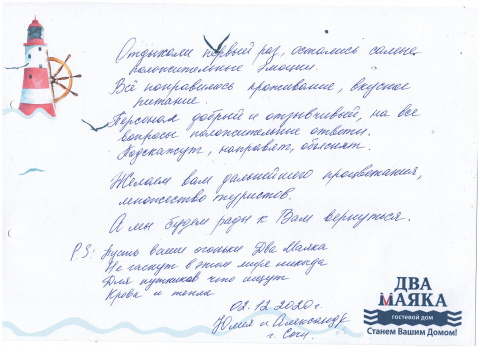 Отдыхали первый раз, остались самые
положительные эмоции.
Всё понравилось проживание, вкусное
питание.
Персонал добрый и отзывчивый, на все
вопросы положительные ответы.
Подскажут, направят, объяснят.
Желаем вам дальнейшего процветания,
множество туристов.
А мы будем рады к Вам вернуться.
P.S: Пусть ваши огоньки Два Маяка
Не гаснут в этом мире никогда
Для путников что ищут
Крова и тепла
02.12.2020г.
Юлия и Александр
г. Сочи.
ДВА
МАЯКА
ГОСТЕВОЙ ДОМ
Станем Вашим Домом!